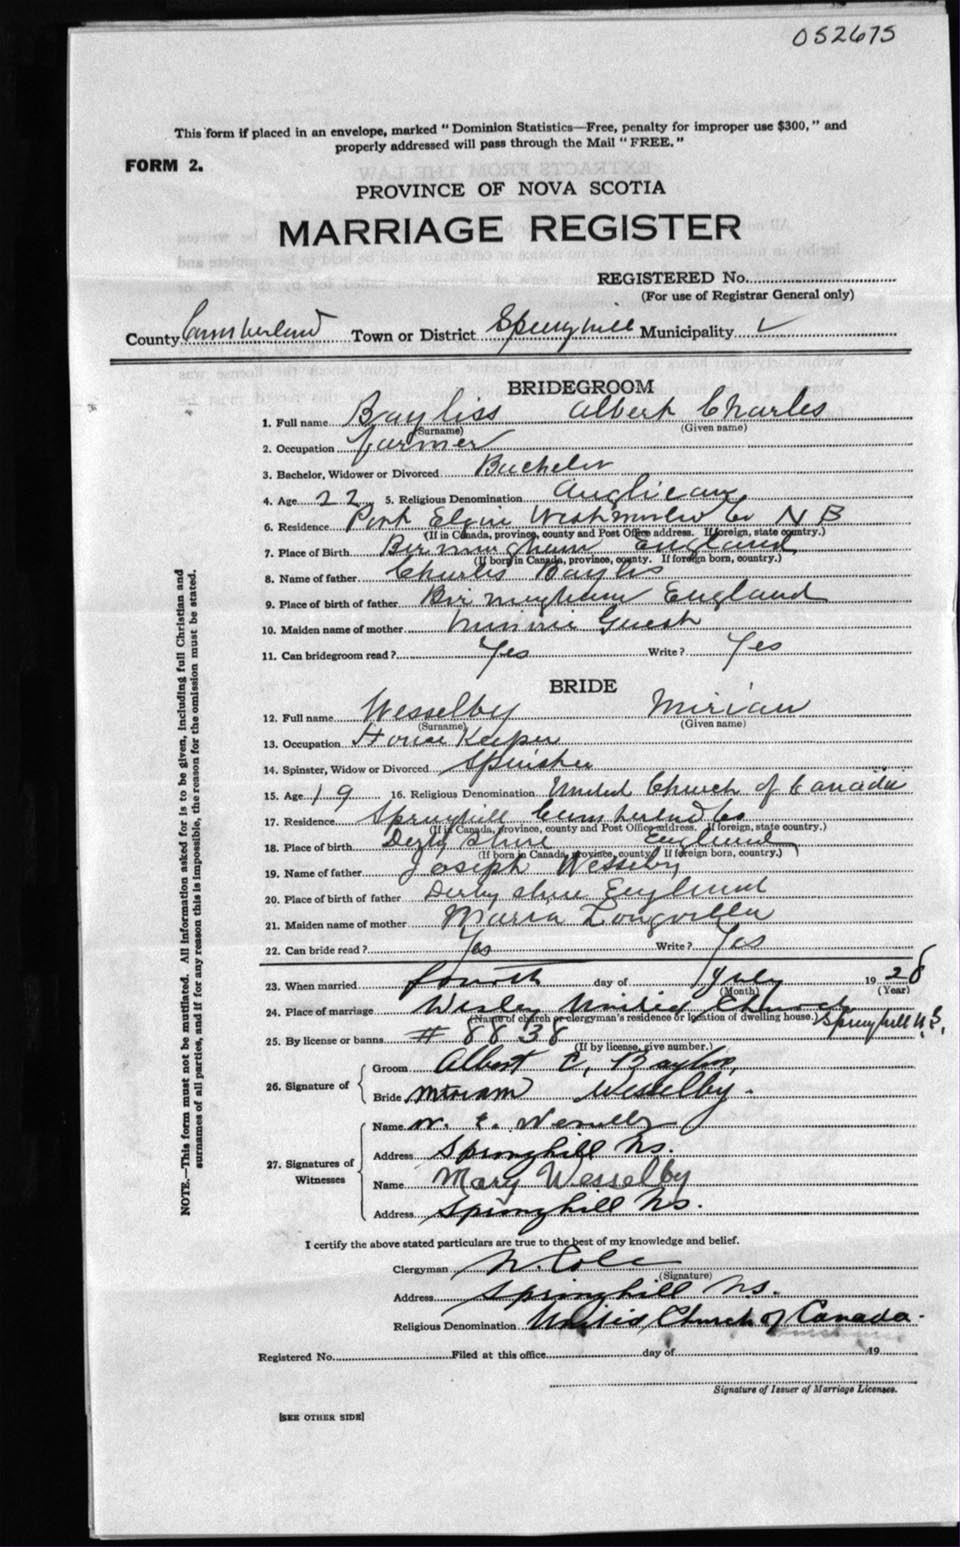 052675
This form if placed in an envelope, marked "Dominion Statistics—Free, penalty for improper use $300," and
properly addressed will pass through the Mail "FREE."
FORM 2.
PROVINCE OF NOVA SCOTIA
MARRIAGE REGISTER
REGISTERED No.
(For use of Registrar General only)
County Cumberland Town or District Springhill Municipality ✓
BRIDEGROOM
1. Full name Bayliss Albert Charles
(Surname) (Given name)
2. Occupation Farmer
3. Bachelor, Widower or Divorced Bachelor
4. Age 22 5. Religious Denomination Anglican
6. Residence Port Elgin Westmorland Co N B
(If in Canada, province, county and Post Office address. If foreign, state country.)
7. Place of Birth Birmingham England
(If born in Canada, province, county. If foreign born, country.)
8. Name of father Charles Baylis
9. Place of birth of father Birmingham England
10. Maiden name of mother Minnie Guest
11. Can bridegroom read? Yes Write? Yes
BRIDE
12. Full name Wesselby Miriam
(Surname) (Given name)
13. Occupation House Keeper
14. Spinster, Widow or Divorced Spinster
15. Age 19 16. Religious Denomination United Church of Canada
17. Residence Springhill Cumberland Co
(If in Canada, province, county and Post Office address. If foreign, state country.)
18. Place of birth Derby Shire England
(If born in Canada, province, county. If foreign born, country.)
19. Name of father Joseph Wesselby
20. Place of birth of father Derby shire England
21. Maiden name of mother Maria
22. Can bride read? Yes Write? Yes
23. When married fourth day of July 1928
(Month) (Year)
24. Place of marriage Wesley United Church Springhill N.S.
(Name of church or clergyman's residence or location of dwelling house.)
25. By license or banns # 8838
(If by license, give number.)
26. Signature of
Groom Albert C. Bayliss
Bride Miriam Wesselby.
27. Signatures of Witnesses
Name W.
Address Springhill Ns.
Name Mary Wesselby
Address Springhill Ns.
I certify the above stated particulars are true to the best of my knowledge and belief.
Clergyman
(Signature)
Address Springhill N.S.
Religious Denomination United Church of Canada.
Registered No. Filed at this office day of 19
Signature of Issuer of Marriage Licenses.
[SEE OTHER SIDE]
NOTE.—This form must not be mutilated. All information asked for is to be given, including full Christian and
surnames of all parties, and if for any reason this is impossible, the reason for the omission must be stated.